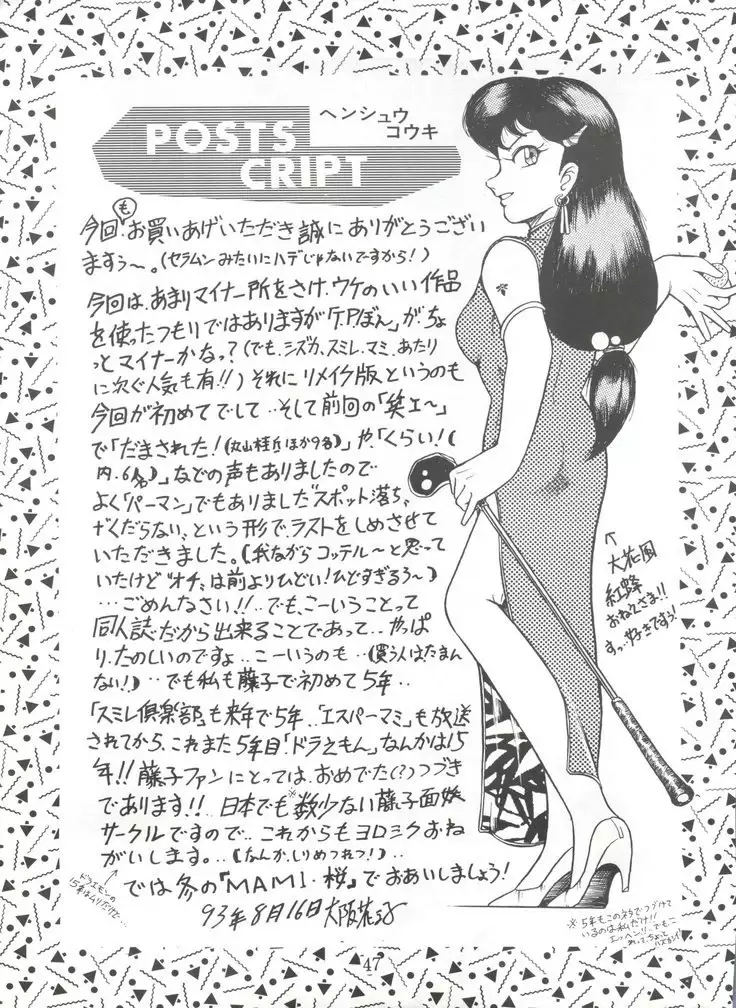 POSTS
CRIPT
ヘンシュウ
コウキ
も
今回お買いあげいただき誠にありがとうござい
ますぅ〜。(セラムンみたいにハデじゃないですから!)
今回は、あまりマイナー所をさけ、ウケのいい作品
を使ったつもりではありますが「T.Pぼん」が、ちょ
っとマイナーかなっ?(でも、シズカ、スミレ、マミ、あたり
に次ぐ人気も有!!)それにリメイク版というのも
今回が初めてでして‥そして前回の「笑ェ〜」
で「だまされた!(丸山桂氏ほか9名)」や「くらい!(
内、6名)」などの声もありましたので
よく「パーマン」でもありました"スポット落ち、
でくだらない、という形で、ラストをしめさせて
いただきました。(我ながらコッテル〜と思って
いたけど"オチ、は前よりひどい!ひどすぎるぅ〜)
…ごめんなさい!!‥でも、こーいうことって
同人誌だから出来ることであって‥やっぱ
り、たのしいのですょ‥こーいうのも‥(買う人はたまん
ない!)‥でも私も藤子で初めて5年‥
「スミレ倶楽部」も来年で5年‥「エスパーマミ」も放送
されてから、これまた5年目!「ドラえもん」なんかは15
年!!藤子ファンにとっては、おめでた(?)つづき
であります!!‥日本でも※数少ない藤子
サークルですので‥これからもヨロシクおね
がいします。‥(なんか、しりめつれつ!)‥
では冬の「MAMI・桜」でおあいしましょう!
93年8月16日大阪
↑
紅蜂
おねえさま!!
すっ・好きですぅ!
ドラエモンの
※5年もこのネタでつづけて
いるのは私だけ!!
47